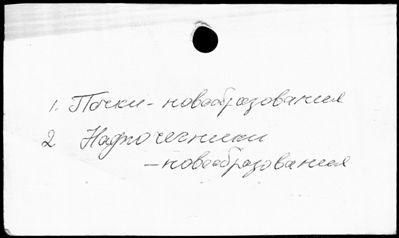 1. Почки - новообразования
2. Надпочечники
- новообразования